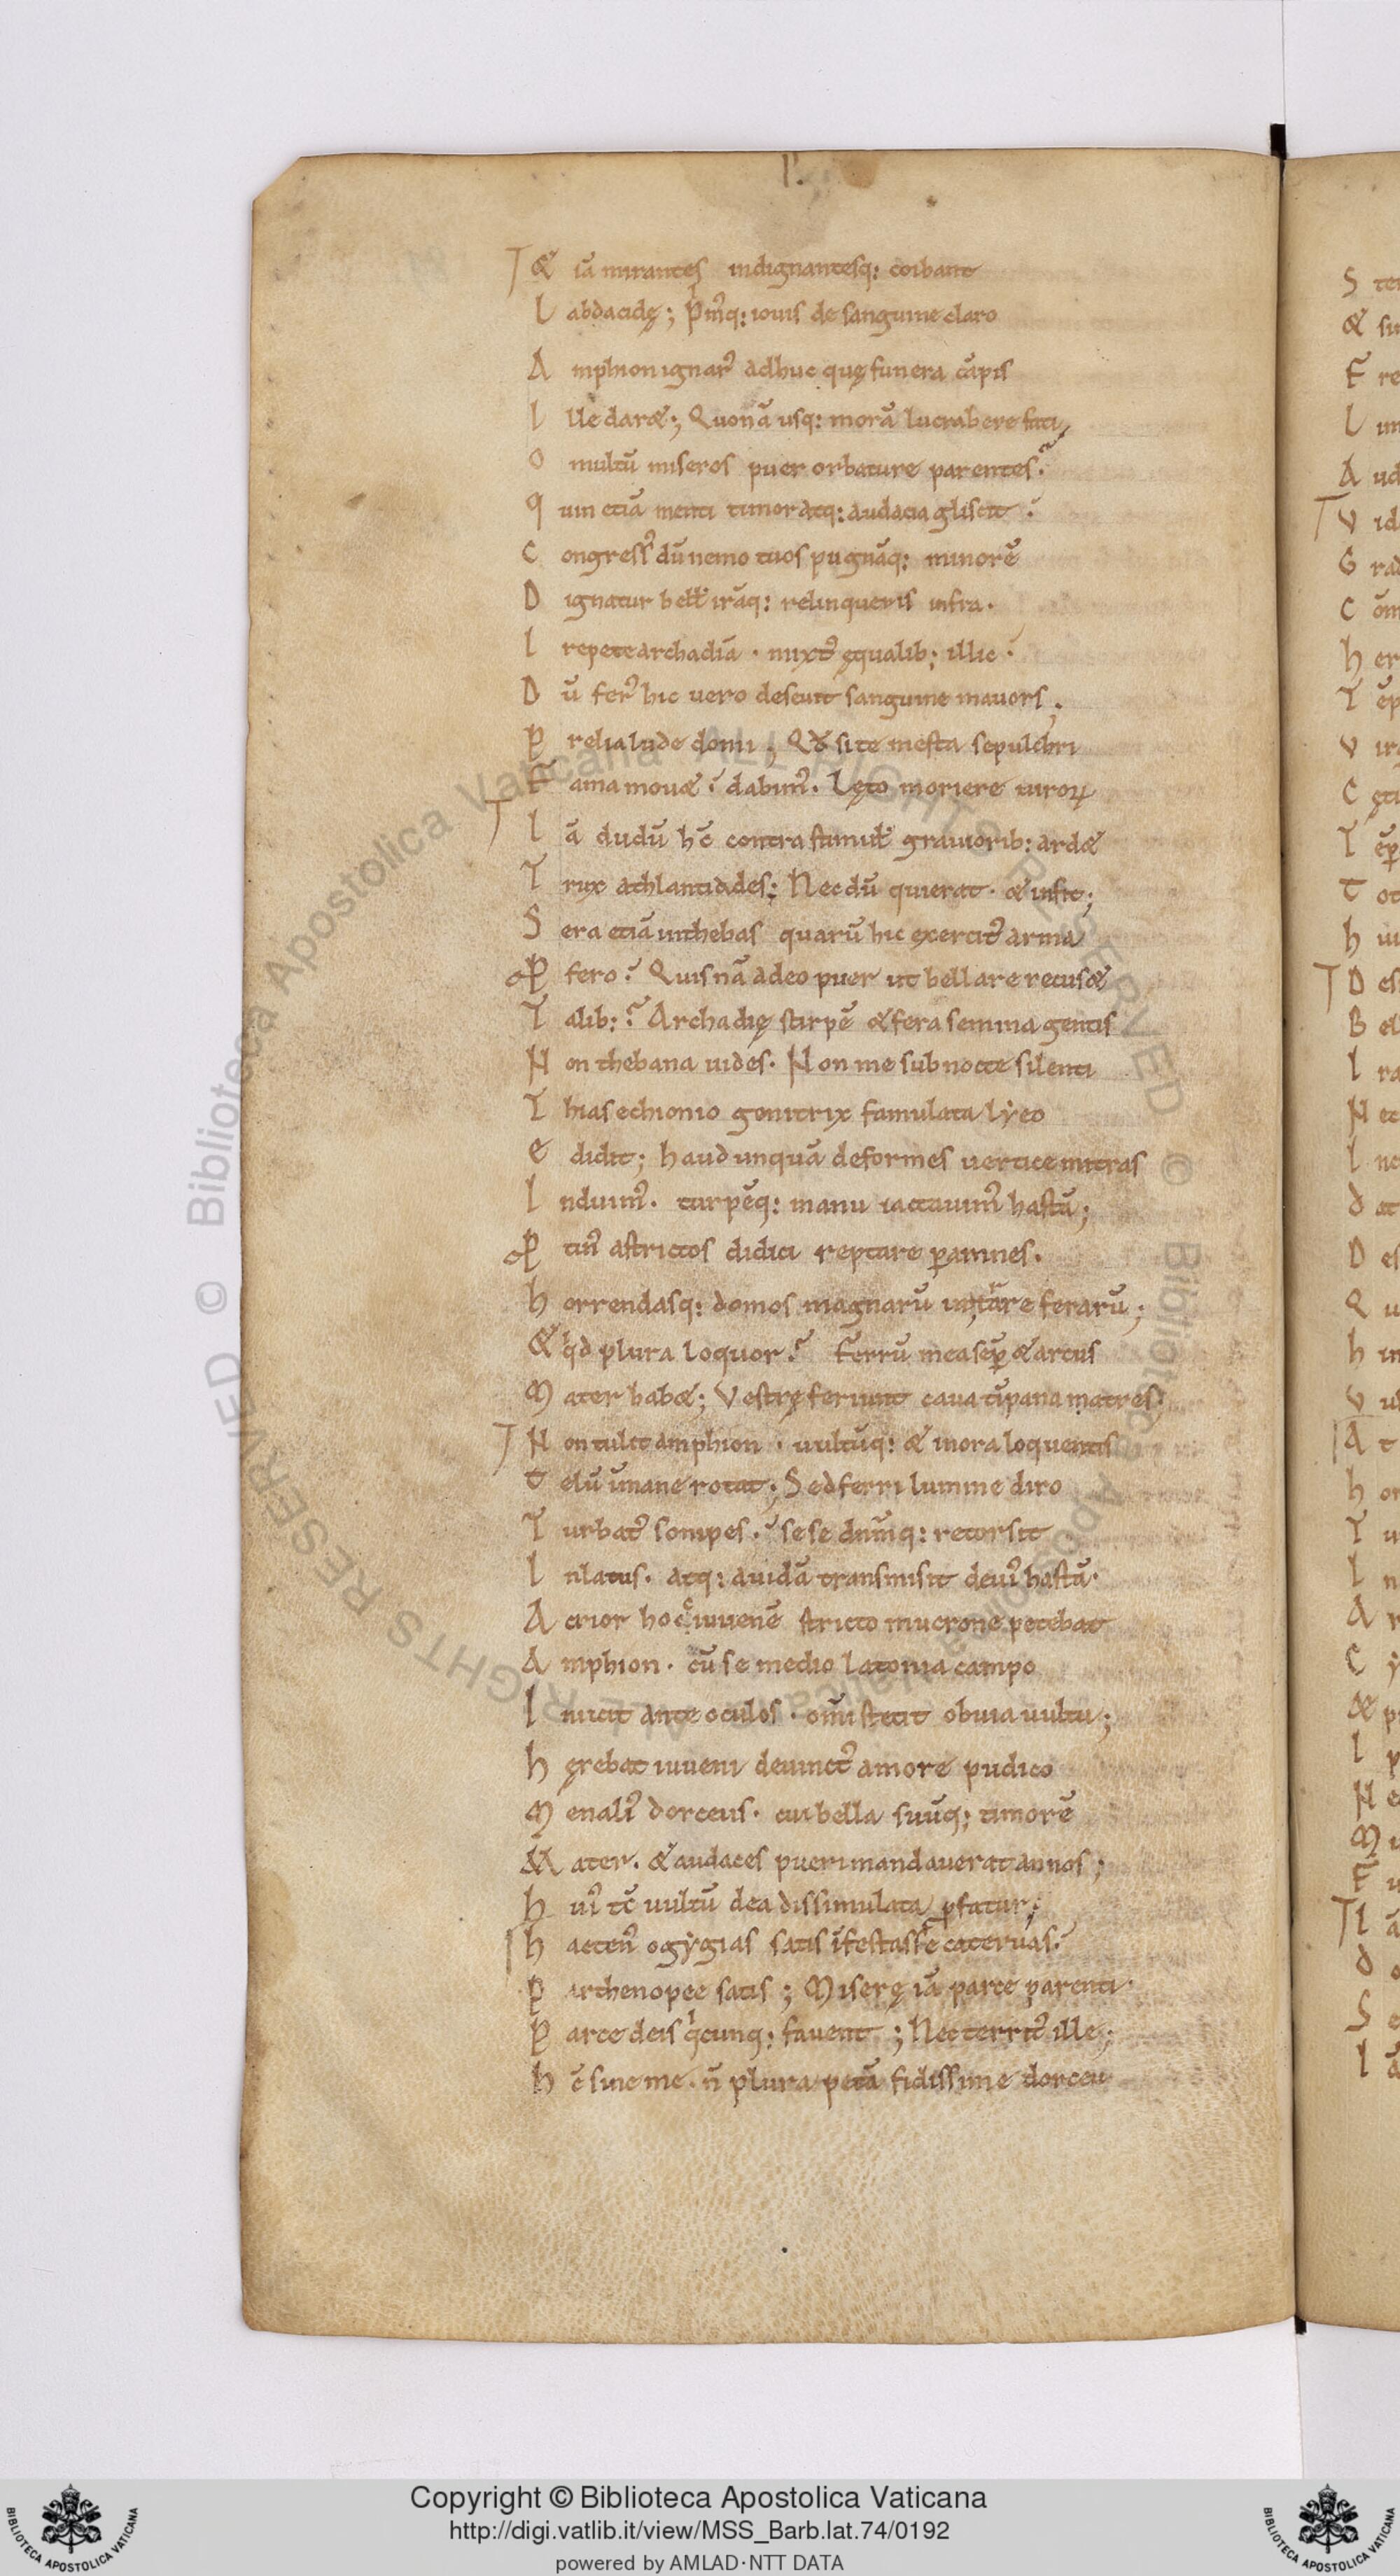 I'.
& iā mirantes indignantesq: coibant
L abdacidę; p̄mq: iouis de sanguine claro
A mphion ignar᾽ adhuc quę funera cāpis
I lle dar&; Quonā usq: morā lucrabere fati
O multū miseros puer orbature parentes.
Q uin etiā menti timor atq: audacia gliscit
C ongress᾽ dū nemo tuos pugnāq: minorē
D ignatur bell᾽ irāq: relinqueris infra.
I repete archadiā . mixt᾽ ęqualib; illic .
D ū fer᾽ hic uero desęuit sanguine mauors;
P relia lude domi; Qd̄ si te mesta sepulchri
F ama mou&; dabim᾽. Lęto moriere uiroꝝ
I ā dudū hc̄ contra stimul᾽ grauiorib: ard&
T rux athlantiades; Necdū quierat . & infit;
S era etiā in thebas quarū hic exercit᾽ arma
P fero? Quisnā adeo puer ut bellare recus&
T alib:? Archadię stirpē & fera semina gentis
N on thebana uides. Non me sub nocte silenti
T hias echionio genitrix famulata lẏeo
E didit; haud unquā deformes uertice mitras
I nduim᾽. turpēq: manu iactauim᾽ hastā;
P tin᾽ astrictos didici reptare p̱ amnes.
h orrendasq: domos magnarū intrare ferarū;
& qd plura loquor? Ferrū mea sep̄ & arcus
M ater hab&; Vestrę feriunt caua tīpana matres;
N on tulit amphion . uultūq: & inora loquentis
T elū īmane rotat; Sed ferri lumine diro
T urbat᾽ sonipes. sese dn̄mq: retorsit
I nlatus. atq: auidā transmisit deui᾽ hastā.
A crior hoc iuuenē stricto mucrone petebat
A mphion. cū se medio latonia campo
I niecit ante oculos . om̄i stetit obuia uultu;
h ęrebat iuueni deuinct᾽ amore pudico
M enali᾽ dorceus. cui bella suūq: timorē
M ater. & audaces pueri mandauerat annos;
h ui᾽ tc̄ uultū dea dissimulata p̱fatur;
h acten᾽ ogẏgias satis īfestasse cateruas.
P arthenopee satis; Miserę iā parce parenti.
P arce deis qicunq: fauent; Nec territ᾽ ille;
h c̄ sine me. n̄ plura petā fidissime dorceu
S
& 
F re
L
A ud
V id
G rad
C ōm
h er
Copyright © Biblioteca Apostolica Vaticana
http://digi.vatlib.it/view/MSS_Barb.lat.74/0192
powered by AMLAD·NTT DATA